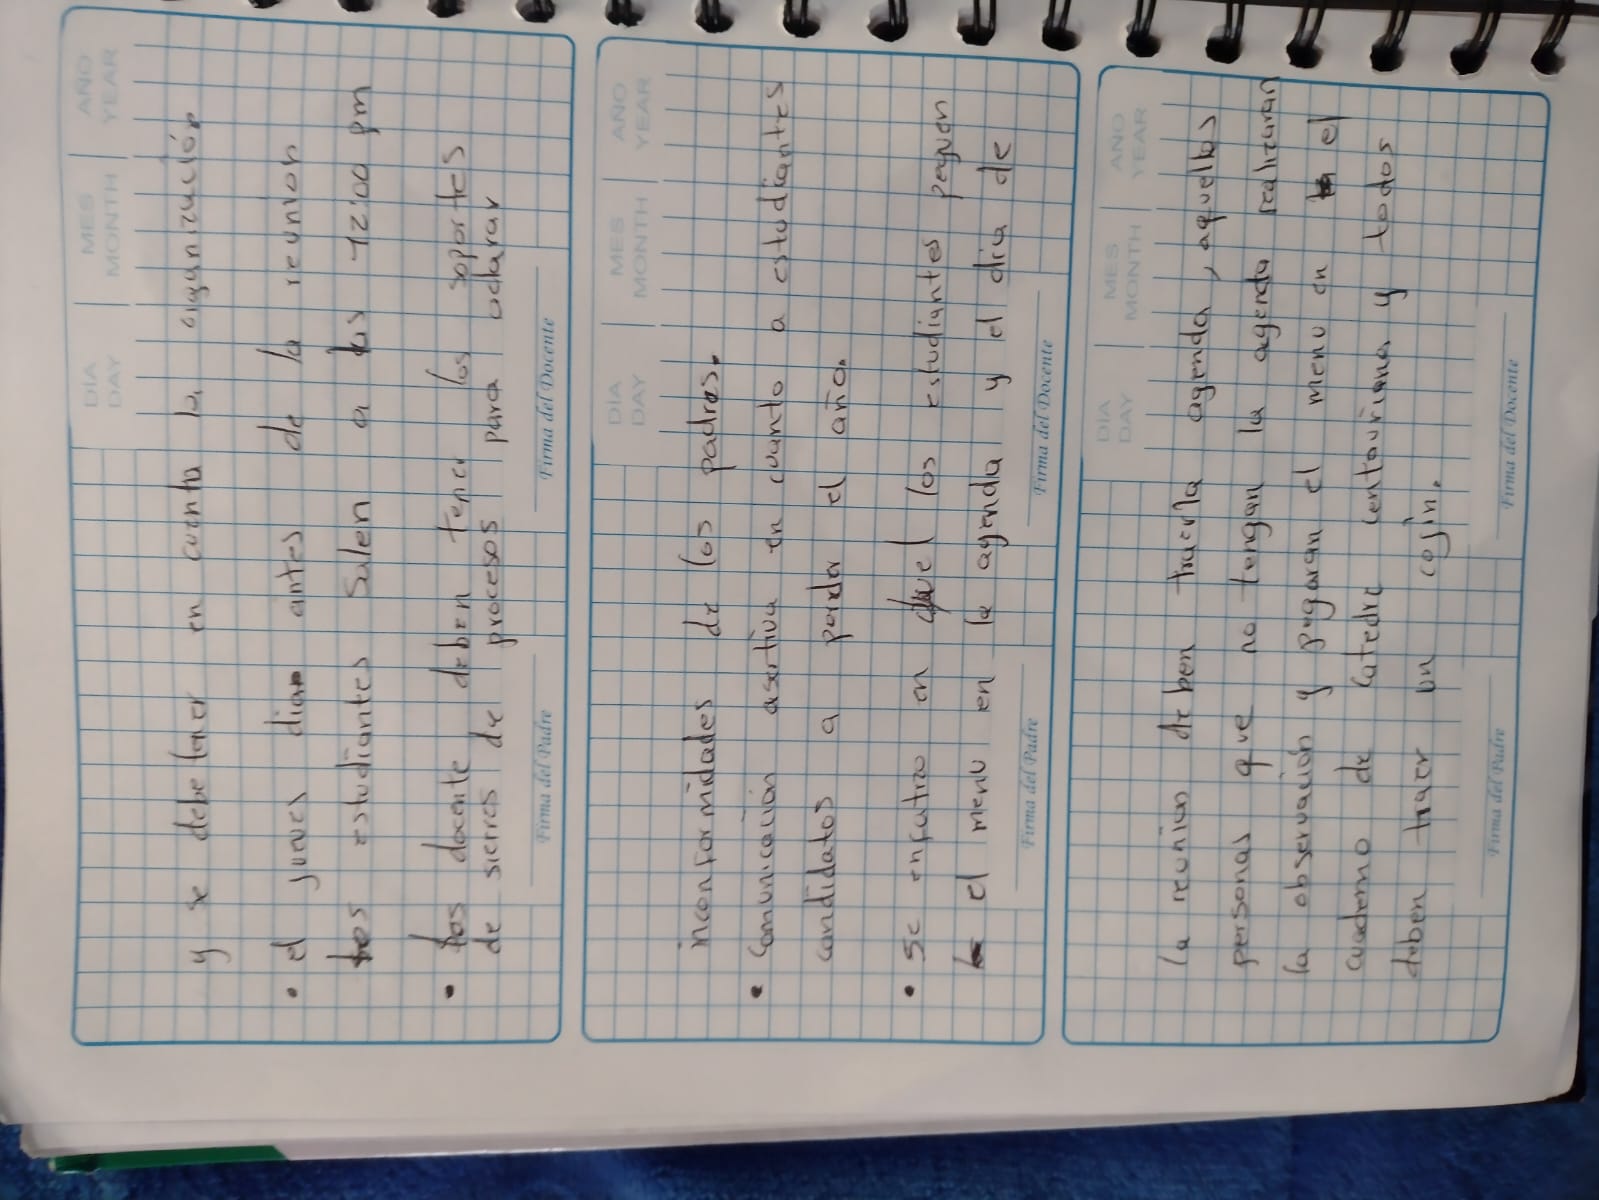 DÍA MES AÑO
DAY MONTH YEAR
y se debe tener en cuenta la organización
• el jueves dia antes de la reunion
los estudiantes salen a las 12:00 pm
• los docente deben tener los soportes
de sierres de procesos para aclarar
Firma del Padre Firma del Docente
DÍA MES AÑO
DAY MONTH YEAR
inconformidades de los padres.
• Comunicación asertiva en cuanto a estudiantes
candidatos a perder el año.
• Se enfatizo en que los estudiantes peguen
el menu en la agenda y el dia de
Firma del Padre Firma del Docente
DÍA MES AÑO
DAY MONTH YEAR
la reunion deben traerla agenda, aquellos
personas que no tengan la agenda realizaran
la observación y pegaran el menu en el
cuaderno de catedre centauriana y todos
deben traer un cojin.
Firma del Padre Firma del Docente